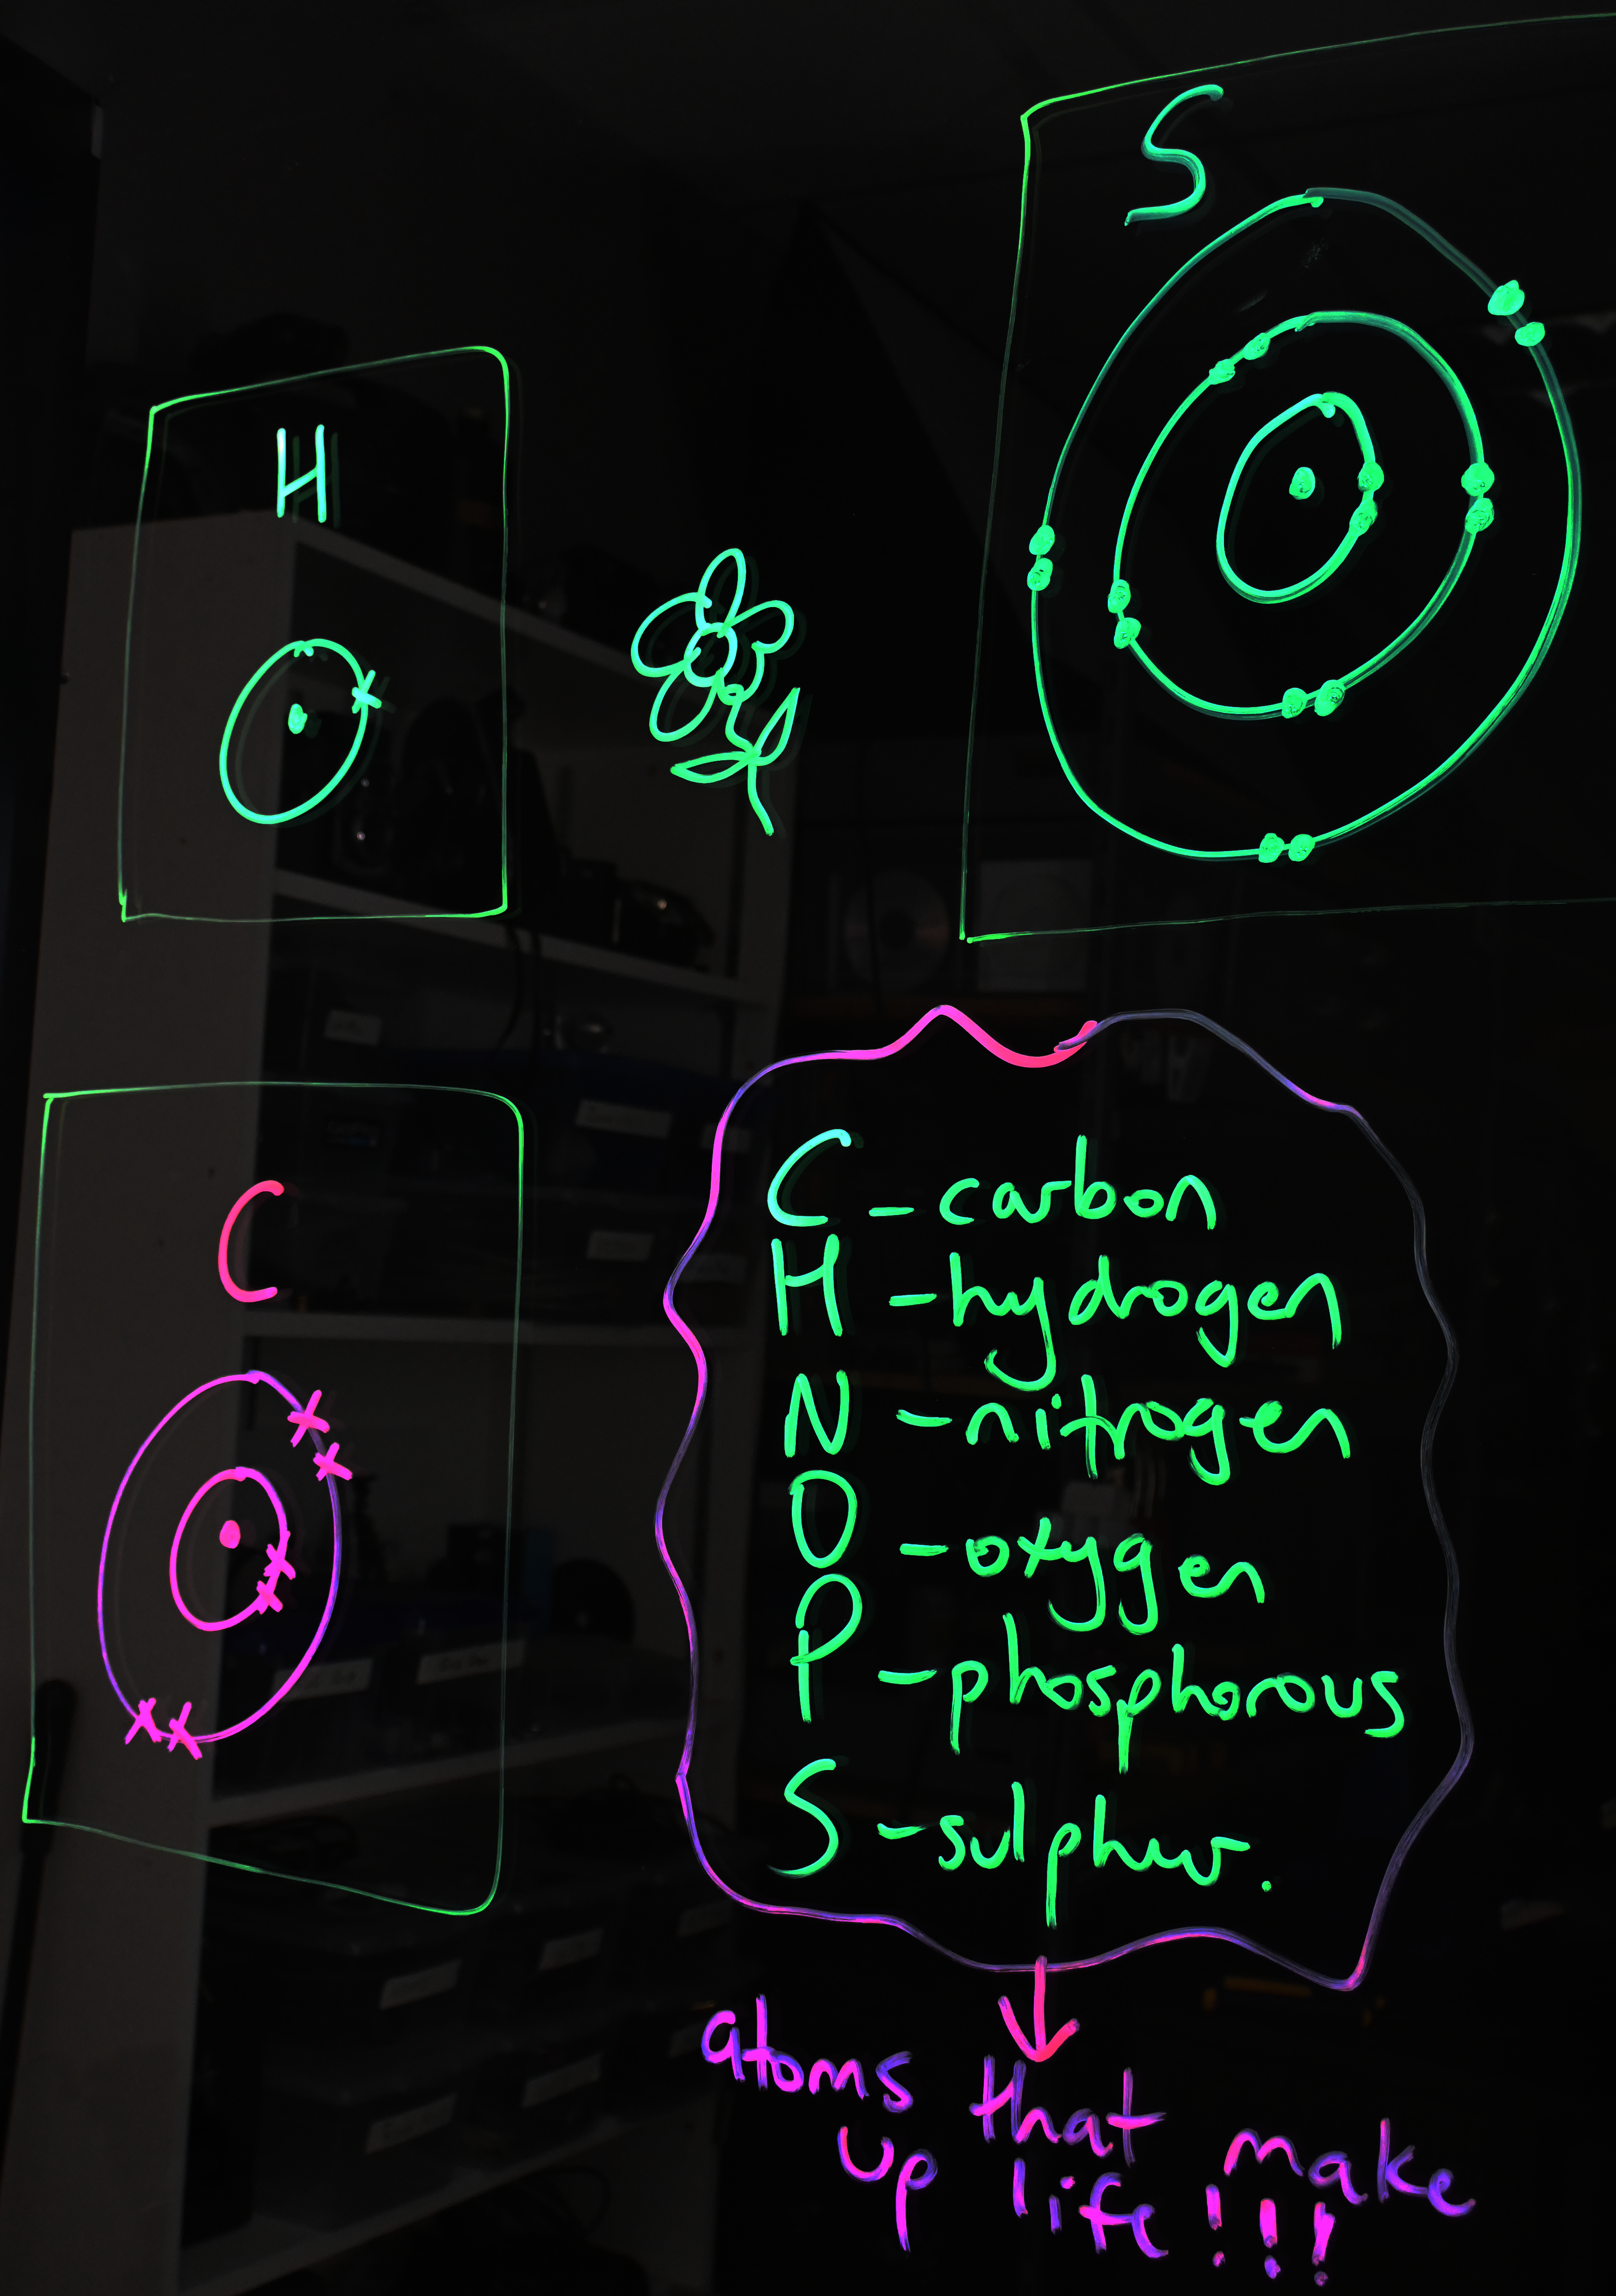 S
H
C
C - carbon
H - hydrogen
N - nitrogen
O - oxygen
P - phosphorous
S - sulphur.
atoms that make
up life!!!